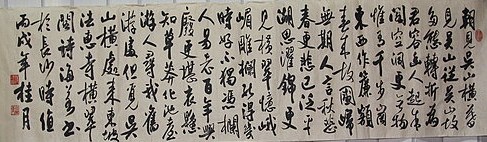 朝見吳山橫暮
見吳山從吳山故
多態轉折為
君容幽人起朱
閣空洞更無物
惟有千步岡
東西作簾額
春來故國歸
無期人言秋悲
春更悲已泛平
湖思濯錦更
見橫翠憶峨
嵋雕欄能得幾
時好不獨憑欄
人易老百年興
廢更堪哀懸
知草莽化池臺
游人尋我舊
游處但覓吳
山橫處來東坡
法惠寺橫翠
閣詩海若書
於長沙時值
丙戌年桂月